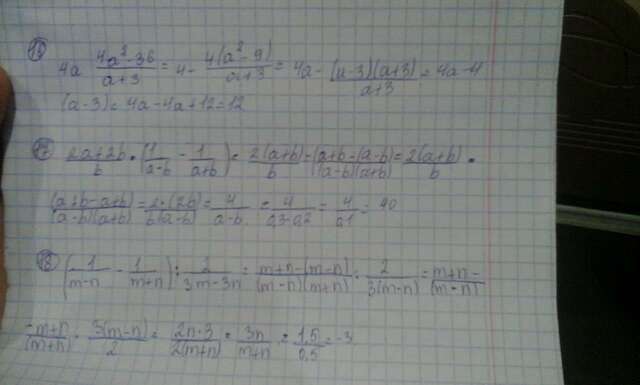 16 4a (4a²-36)/(a+3) = 4- (4(a²-9))/(a+3) = 4a- ((a-3)(a+3))/(a+3) = 4a-4
(a-3) = 4a-4a+12=12
17 (2a+2b)/b · (1/(a-b) - 1/(a+b)) = (2(a+b))/b · (a+b-(a-b))/((a-b)(a+b)) = (2(a+b))/b ·
(a+b-a+b)/((a-b)(a+b)) = (2·(2b))/(b(a-b)) = 4/(a-b) = 4/(0,3-0,2) = 4/0,1 = 40
18 (1/(m-n) - 1/(m+n)) : 2/(3m-3n) = (m+n-(m-n))/((m-n)(m+n)) : 2/(3(m-n)) = (m+n-)/(m-n)
(-m+n)/(m+n) · (3(m-n))/2 = (2n·3)/(2(m+n)) = 3n/(m+n) = 1,5/0,5 = -3